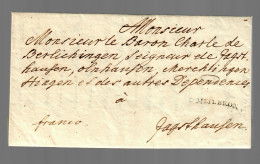 Monsieur
Monsieur le Baron Charle de
Berlichingen, Seigneur de Jagst
hausen, olnhausen,
et des autres Dependences
à
HEILBRON.
franco
Jagsthausen